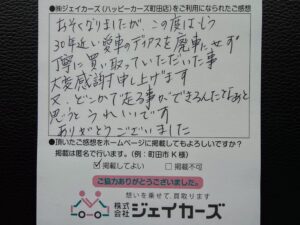 ●㈱ジェイカーズ(ハッピーカーズ町田店)をご利用になられたご感想
おそくなりましたが、この度はもう
30年近い愛車のディアスを廃車にせず
丁寧に買い取っていただいた事
大変感謝申し上げます
又、どこかで走る事ができるんだなぁと
思うとうれしいです
ありがとうございました
●頂いたご感想をホームページに掲載してもよろしいですか?
掲載は匿名で行います。(例:町田市K様)
☑掲載してよい □掲載不可
ご協力ありがとうございました。
想いを乗せて、買取ります
株式会社ジェイカーズ